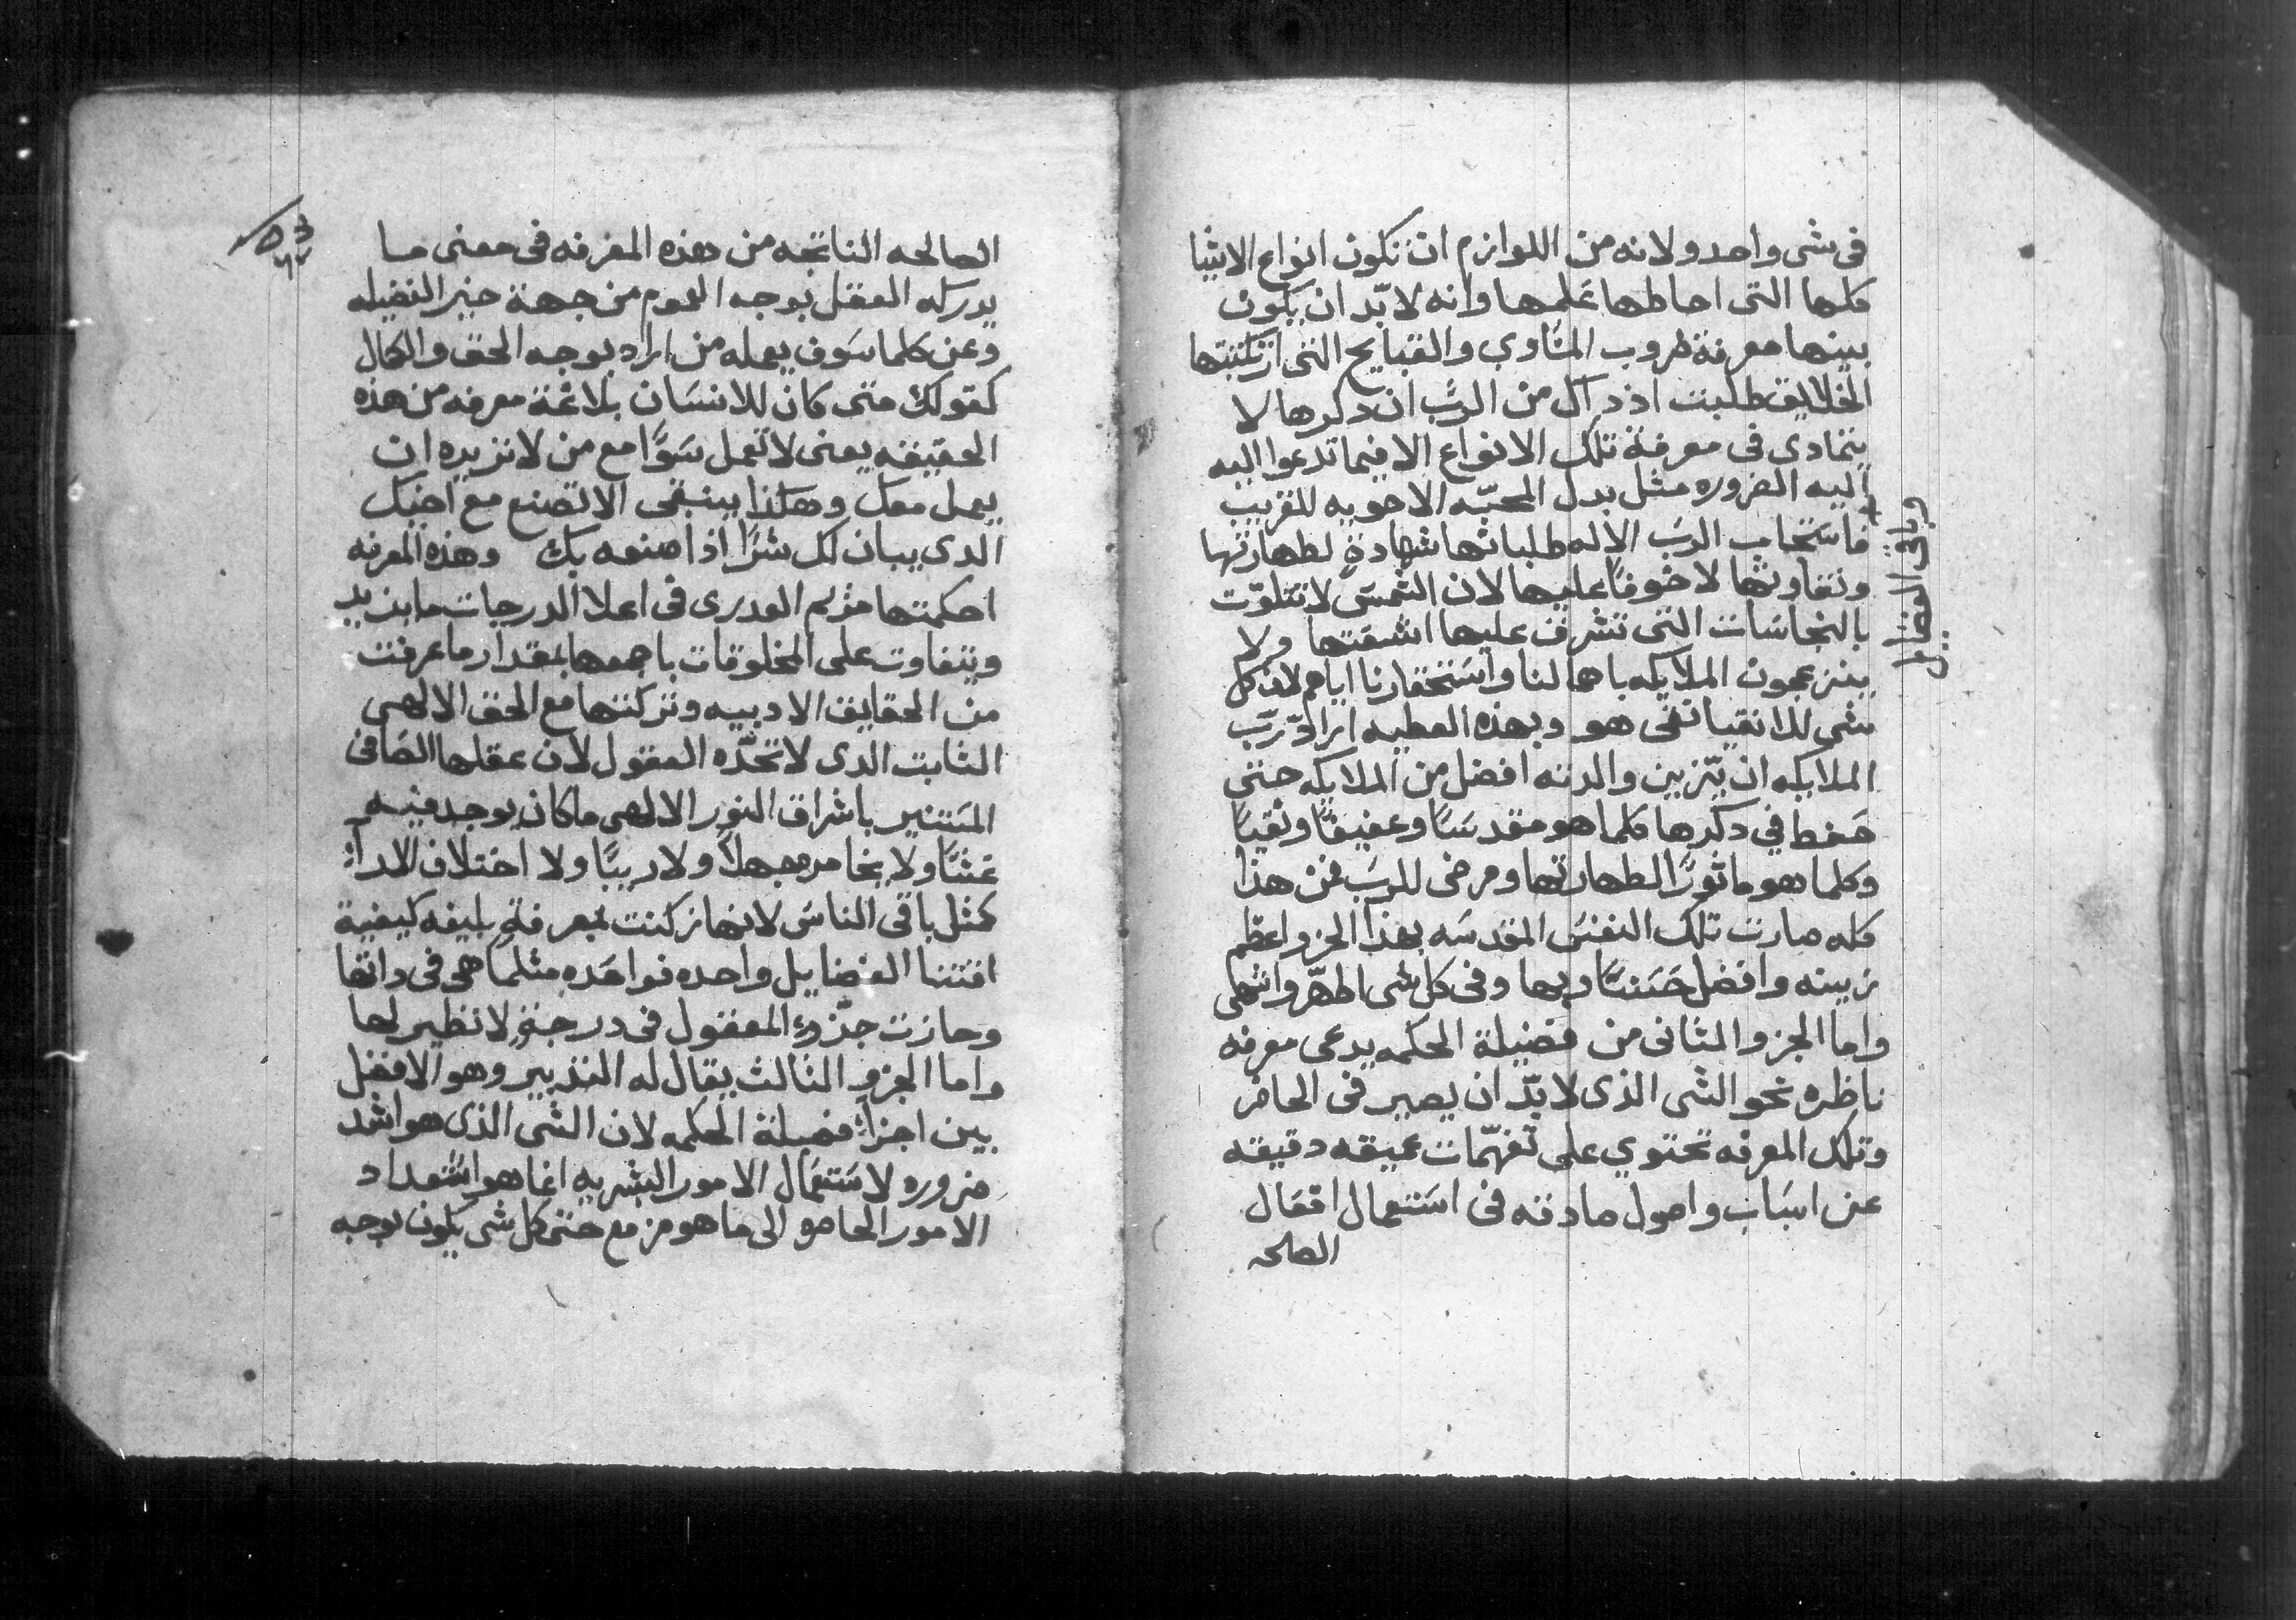 في شي واحد ولانه من اللوازم ان تكون انواع الاشيا
كلها التي احاطها علمها وانه لا بدّ ان يكون
بينها معرفة ضروب المساوي والقبايح التي ارتكبتها
الخلايق طلبت اذ ذاك من الربّ ان ذكرها لا
يتمادى في معرفة تلك الانواع الا فيما تدعوا اليه
اليه الضروره مثل بدل المحبّه الاخويه للقريب
وباقي الفضايل
فاستجاب الربّ الاله طلباتها شهادةٍ لطهارتها
ونقاوتها لا خوفًا عليها لان الشمسَ لا تتلوّت
بالنجاسَات التي تشرف عليها اشعَتها ولا
ينزعجون الملايكه باهمالنا واستحقارنا اياهم لان كل
شي للانقيا نقي هو وبهذه العطيه ارادّ ربّ
الملايكه ان يّزين والدته افضل من الملايكه حتى
حَفظ في ذكرها كلما هو مقدسًا وعفيفًا ونقيًا
وكلما هو ماثورًا لطهارتها ومرضي للربّ فمن هذا
كله صارت تلك النفسَ المقدسَه بهذا الجزو اعظم
زينه وافضل حَسَنًا وبها وفي كل شي اطهّر واشهى
واما الجزو الثاني من فضيلة الحكمه يدعى معرفه
ناظره نحو الشي الذي لا بدّ ان يصير في الحاضر
وتلك المعرفه تحتوي على تفهّمات عميقه دقيقه
عن اسبَاب واصول صادقه في استعمال افعَال
الصالحه
الصالحه الناتجه من هذه المعرفه في معنى ما
يدركه العقل بوجه العموم من جهة خير الفضيله
وعن كلما سَوف يعمله من اراد بوجه الحق والكمال
كقولك متى كان للانسَان بلاغة معرفه من هذه
الحقيقه يعني لا تعمل سَوًا مع من لا تزيده ان
يعمل معك وهكذا ينبغي الا تصنع مع اخيك
الذي يبان لك شرًا اذا صنعه بك وهذه المعرفه
احكمتها مريم العدرى في اعلا الدرجات ما يزيد
ويتفاوت على المخلوقات باجمعها بمقدار ما عرفت
من الحقايق الادبيه وتركتها مع الحق الالهي
الثابت الذي لا تحدّه العقول لان عقلها الصَافي
المستنير باشراق النور الالهي ما كان يوجد فيه
غشًا ولا يخامره جهلاً ولا ريبًا ولا اختلاف الاراءِ
كمثل باقي الناسَ لانها زكنت بمعرفةٍ بليغه كيفية
اقتنا الفضايل واحده فواحَده مثلما هي في داتها
وحازت جدّوء المعقول في درجةٍ لا نظير لها
واما الجزو الثالث يقال له التدبير وهو الافضل
بين اجزاءِ فضيلة الحكمه لان الشي الذي هو اشد
ضروره لاستعمَال الامور البشريه انما هو استعداد
الامور الحاضره الى ما هو مزمع حتى كل شي يكون بوجه